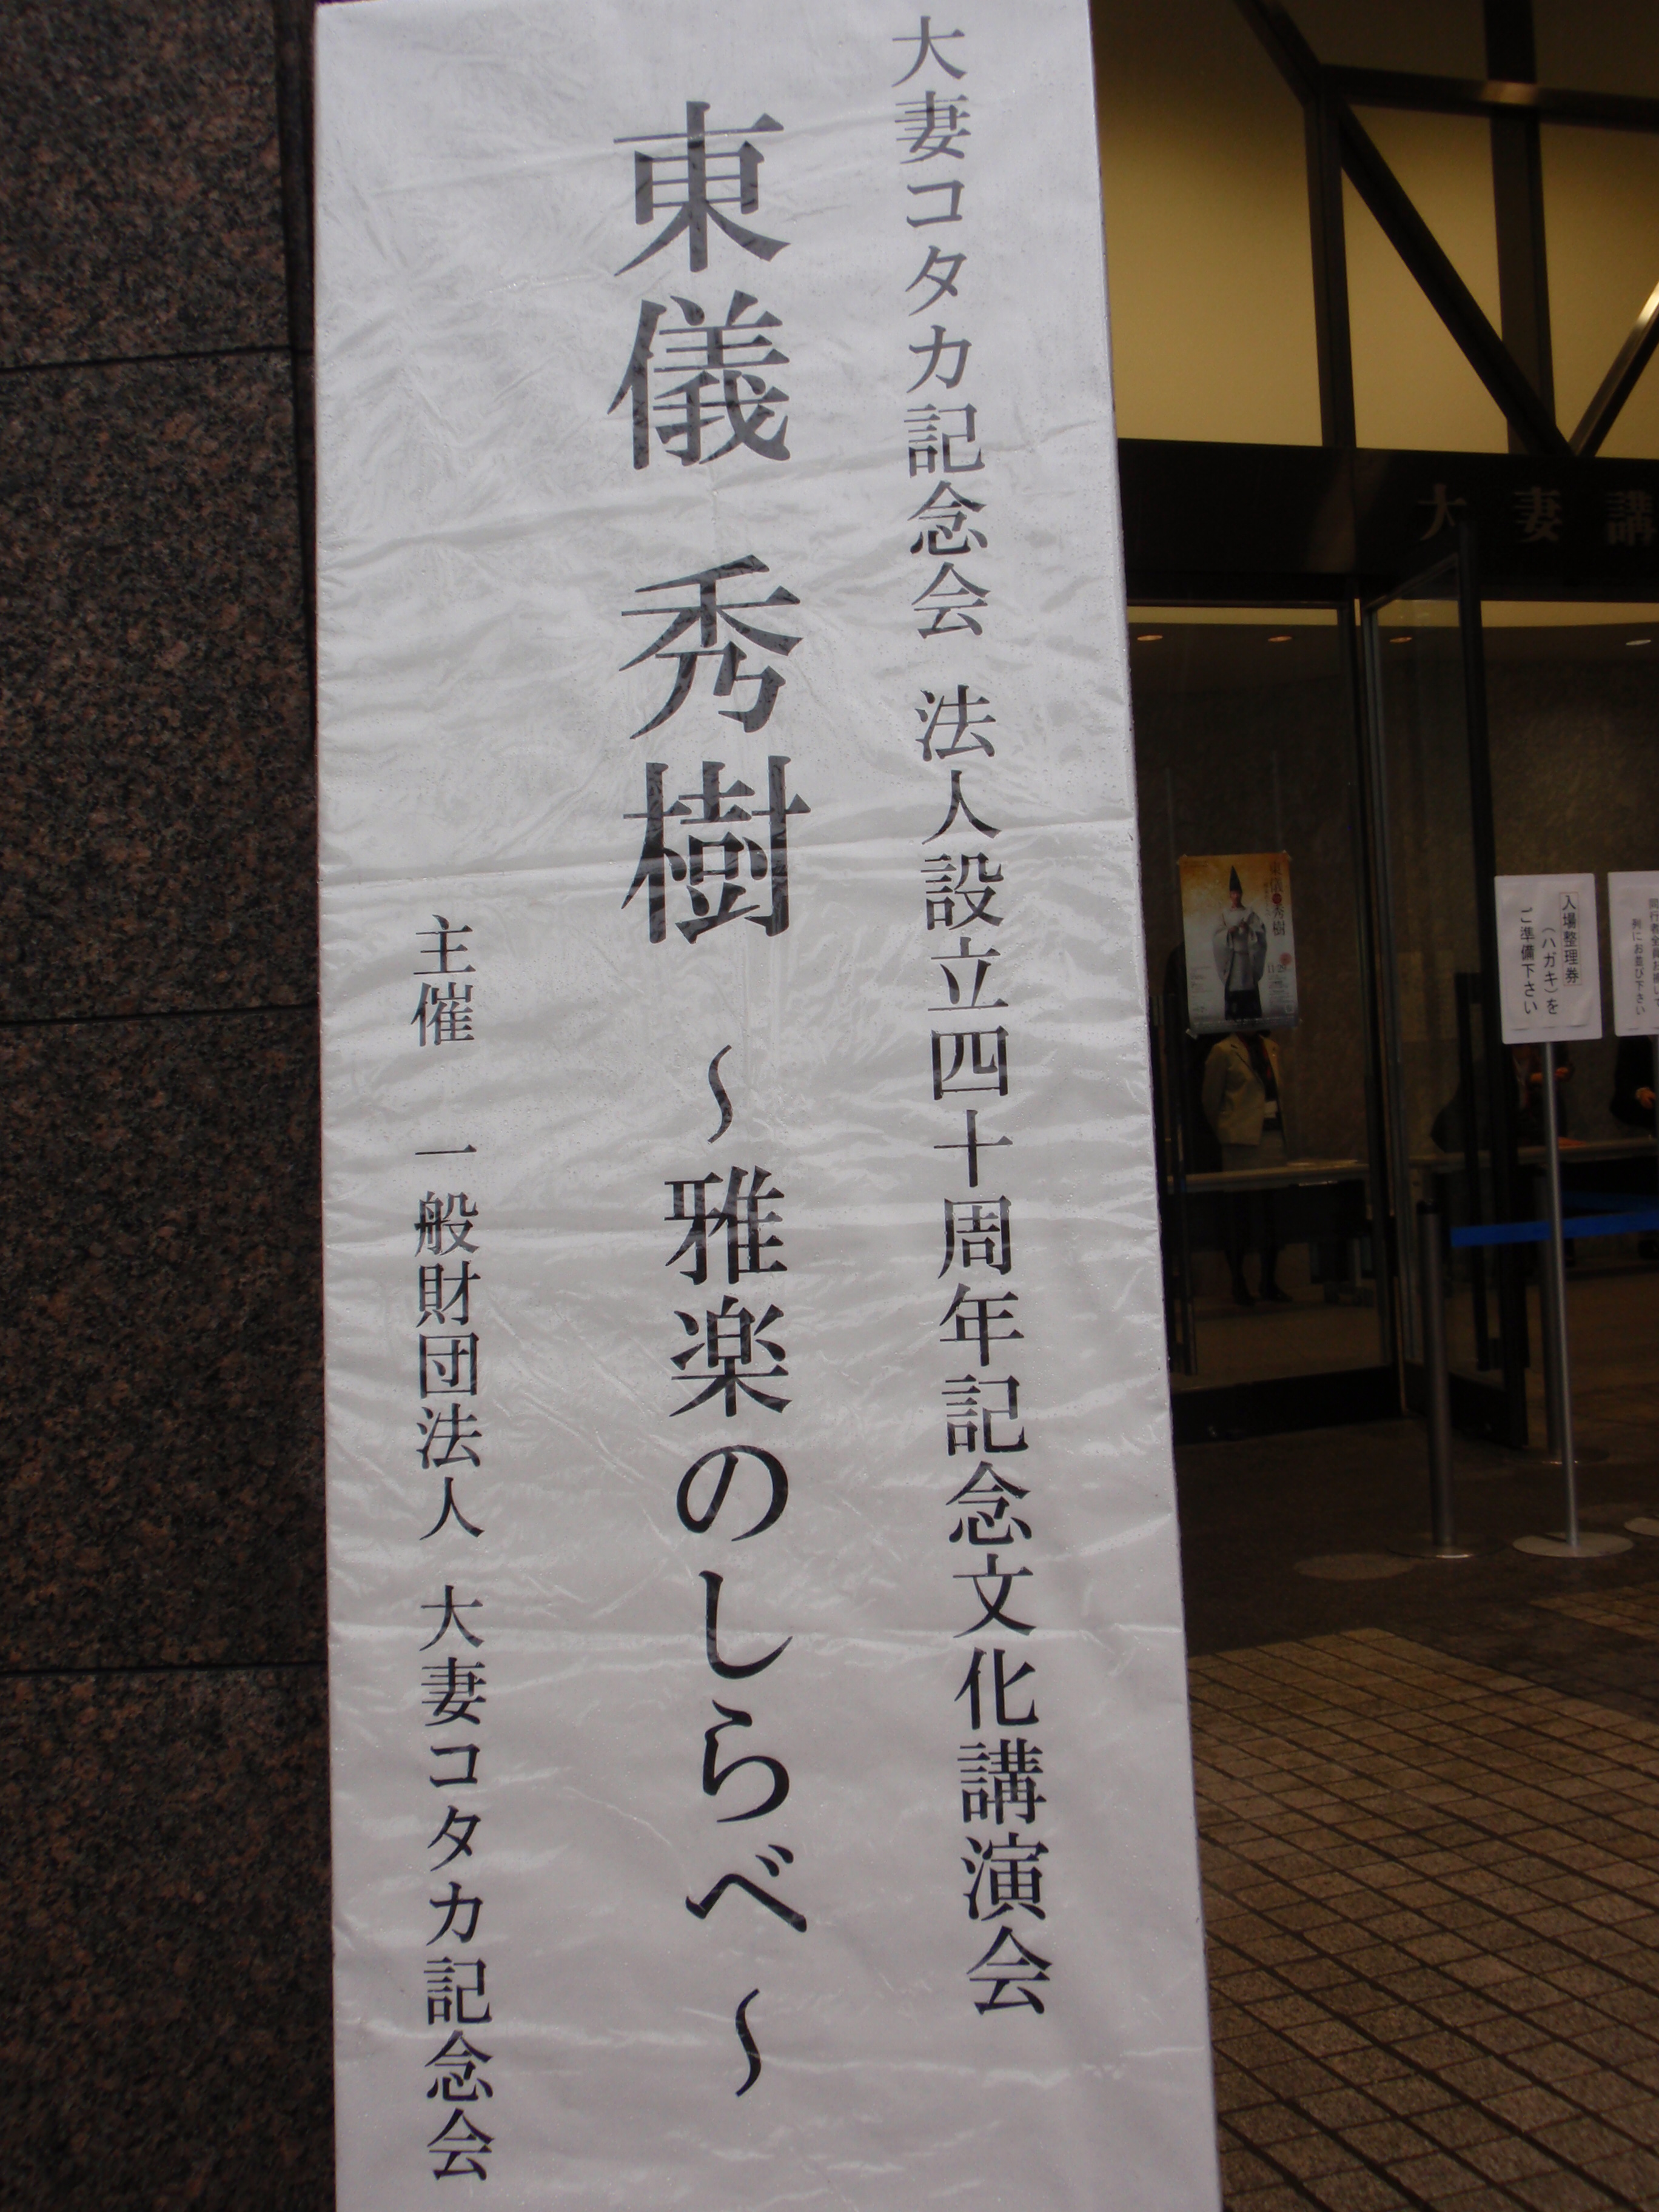 大妻コタカ記念会 法人設立四十周年記念文化講演会
東儀 秀樹 ～雅楽のしらべ～
主催 一般財団法人 大妻コタカ記念会
大妻講
東儀秀樹
入場整理券
（ハガキ）を
ご準備下さい
列にお並び下さい